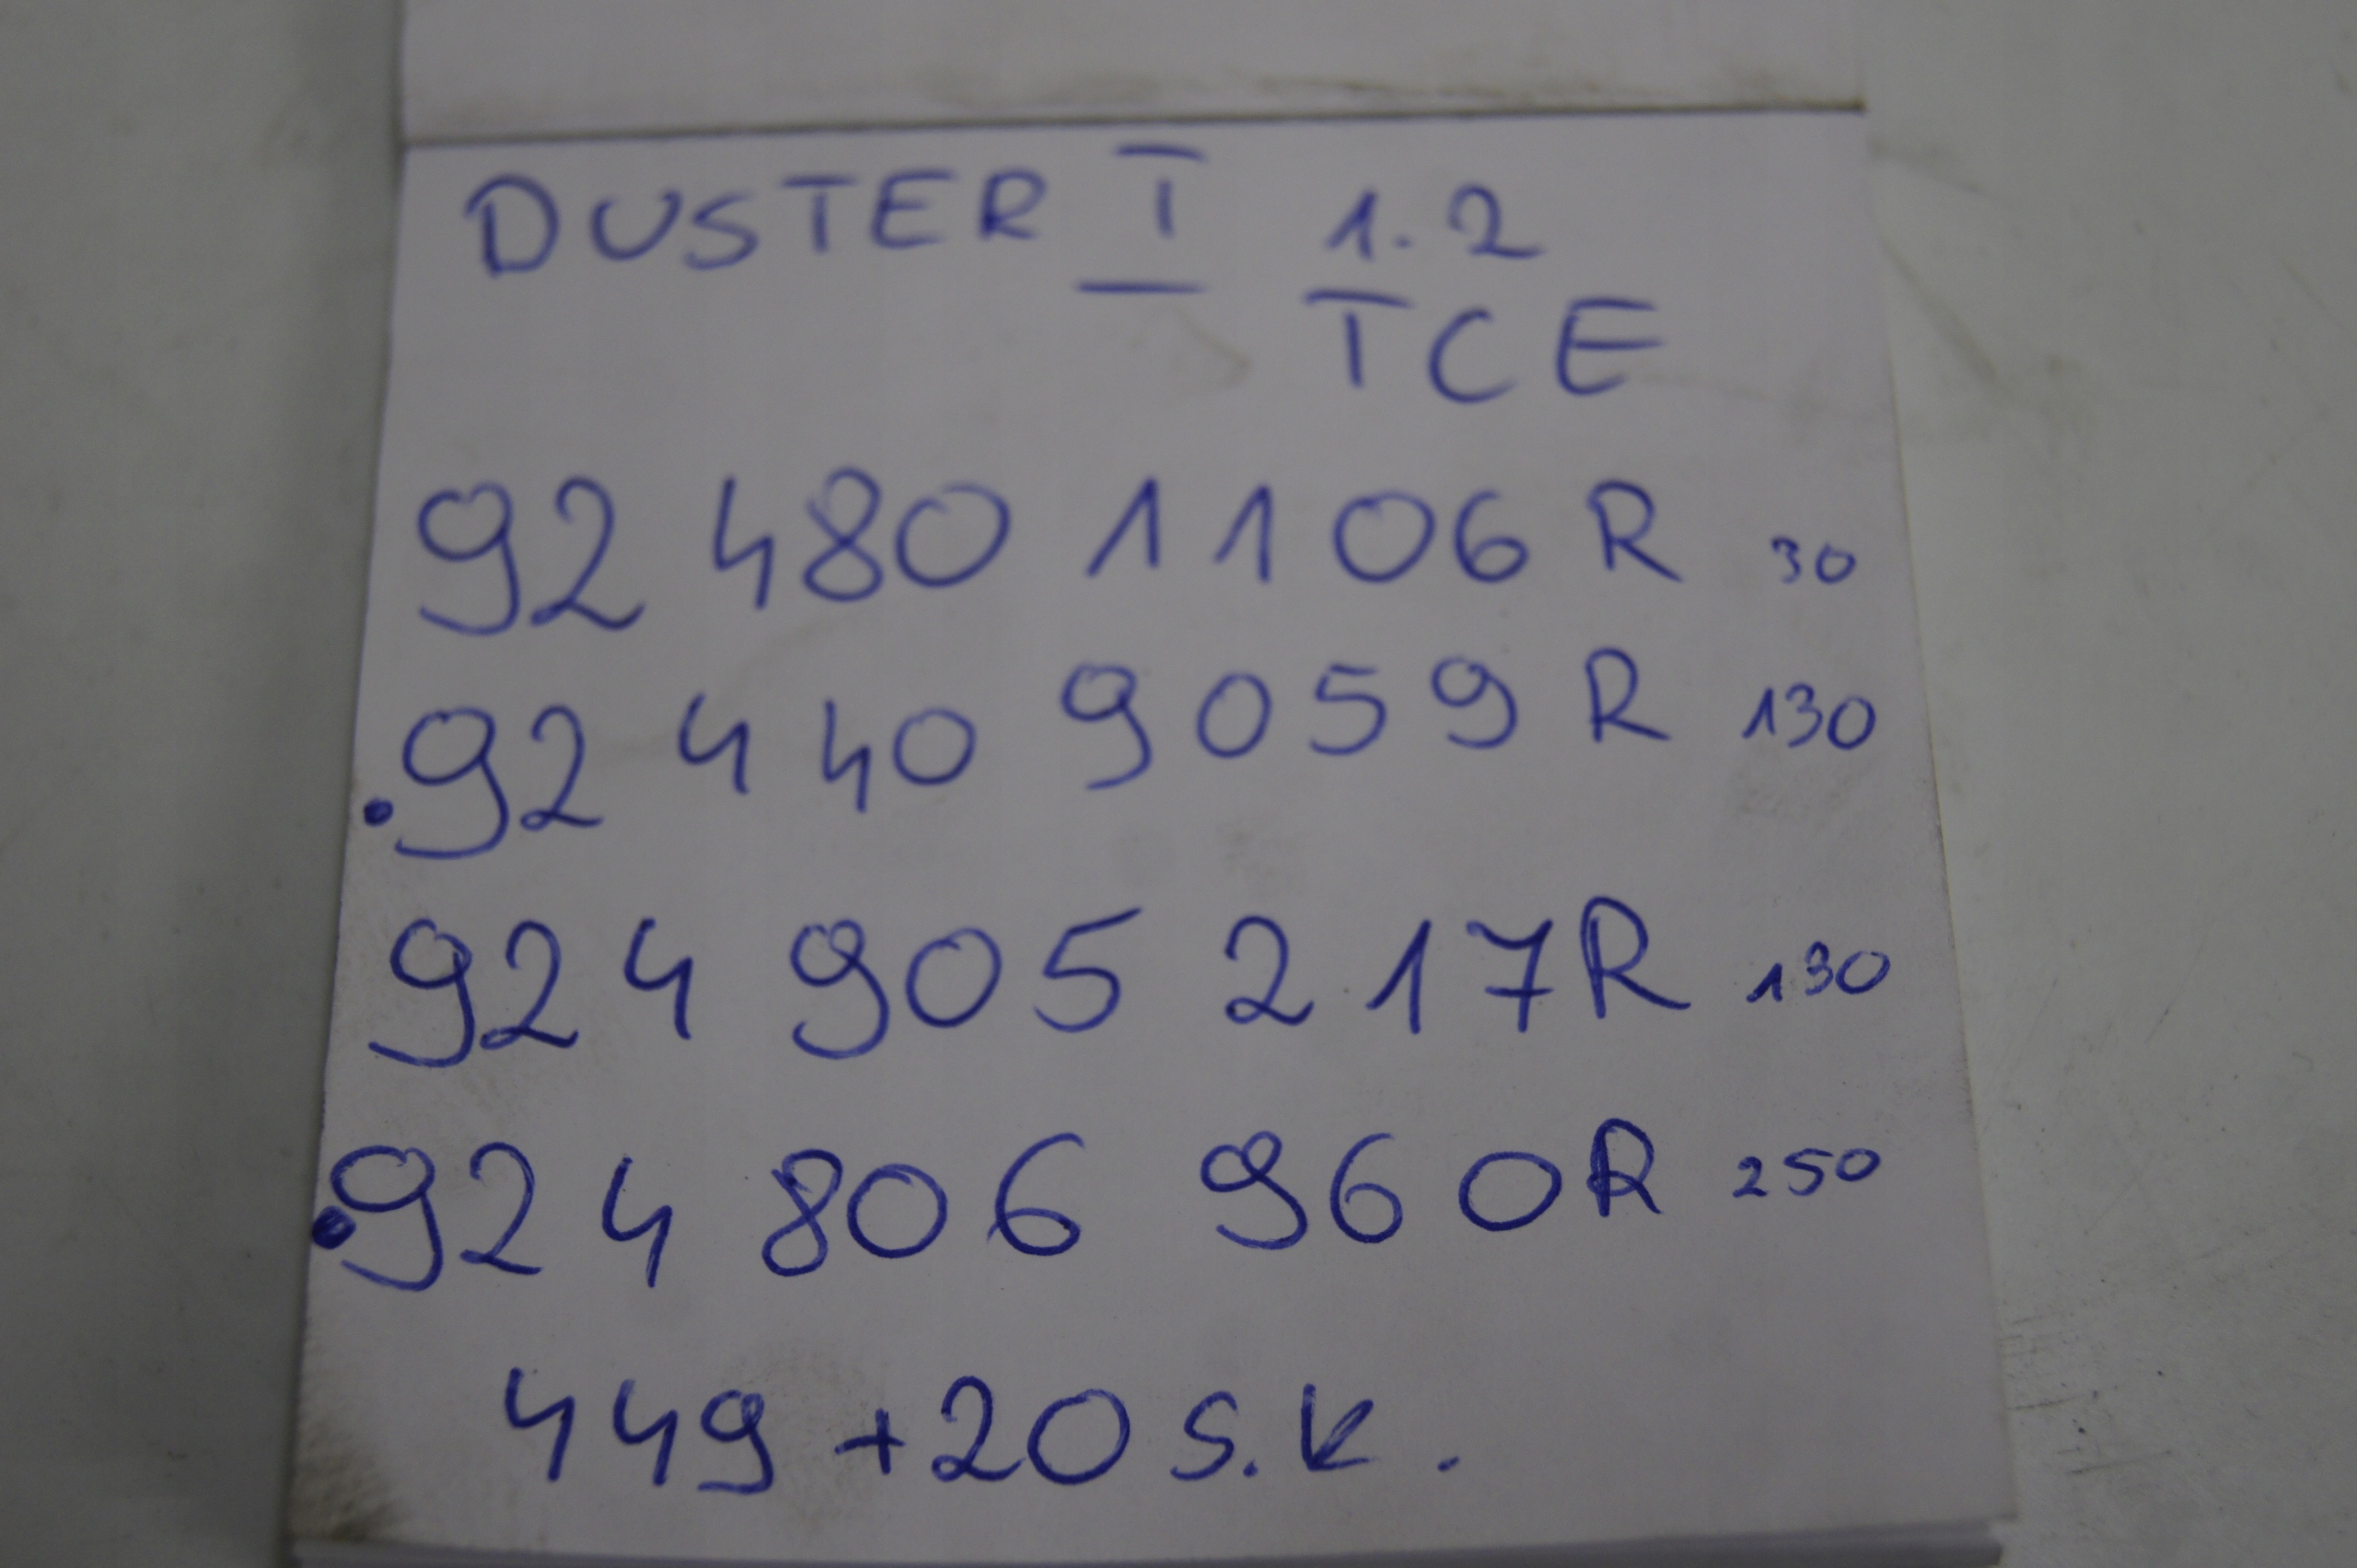 DUSTER I 1.2
TCE
92 480 1106 R 30
.92 440 9059 R 130
924 905 217R 130
.924 806 960R 250
449 +20 S.K.